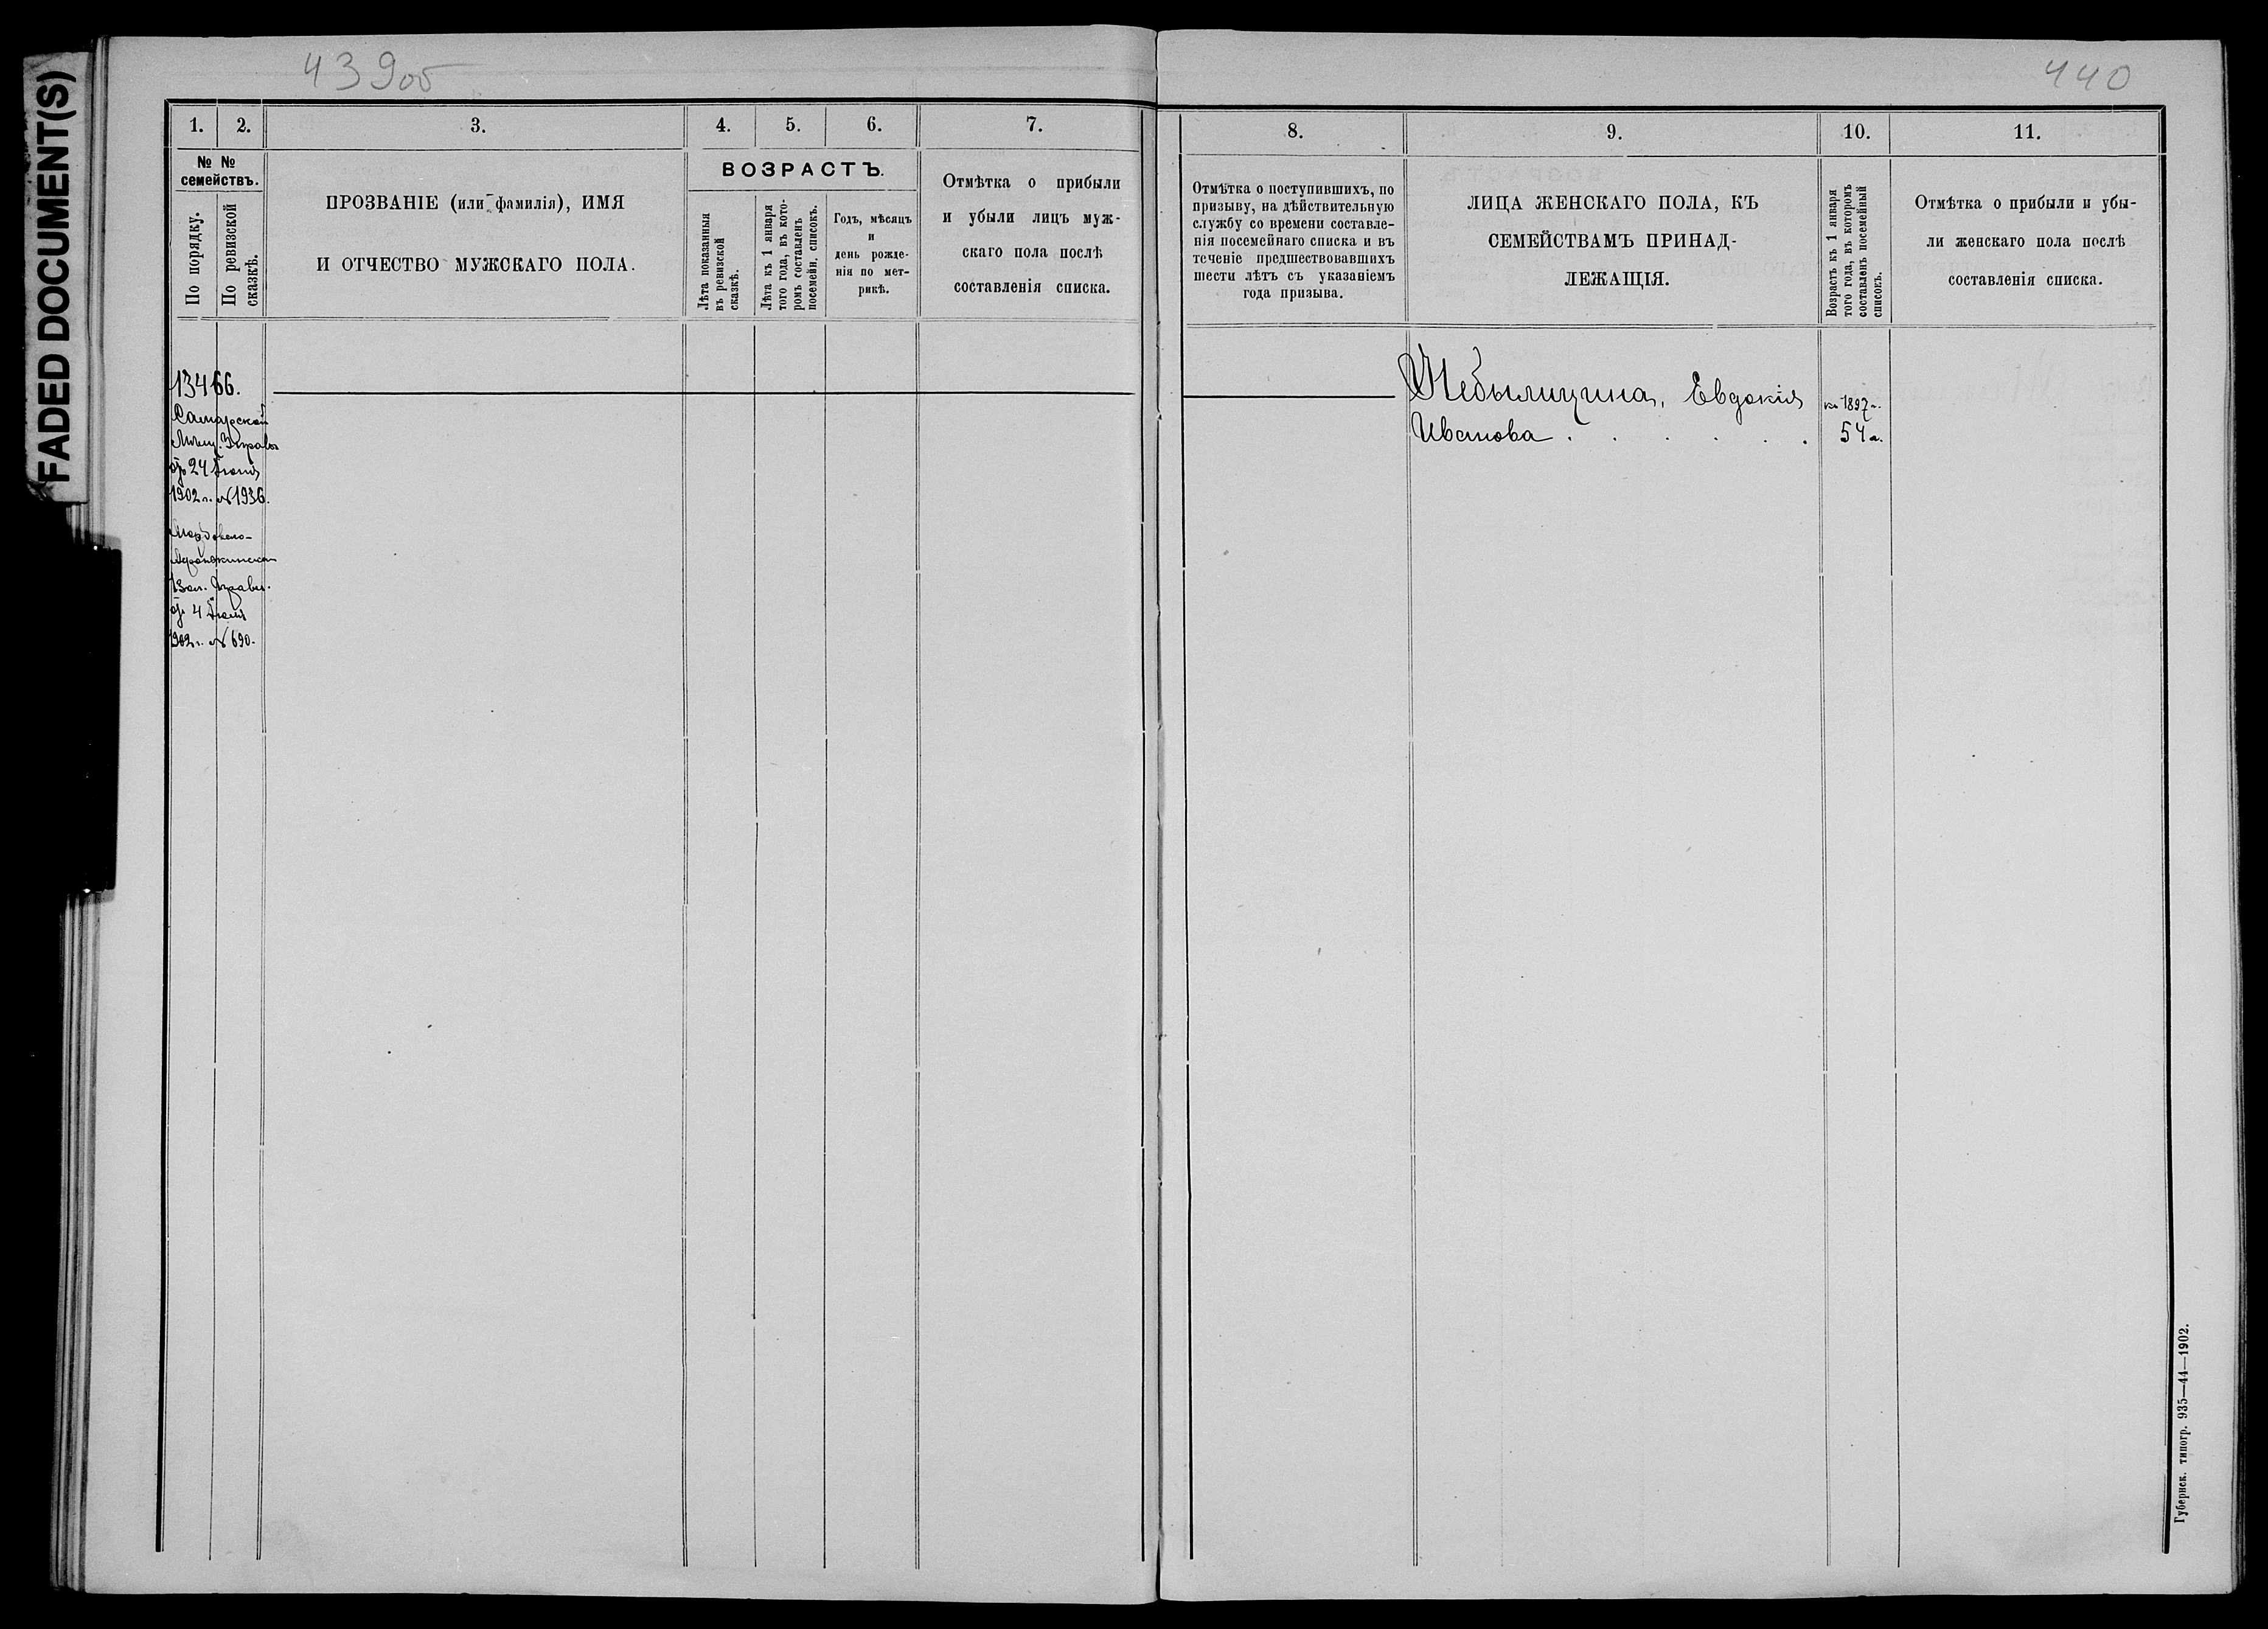 FADED DOCUMENT(S)
439об
440
1.
2.
3.
4.
5.
6.
7.
8.
9.
10.
11.
№ №
семействъ.
По порядку.
По ревизской
сказкѣ.
ПРОЗВАНІЕ (или фамилія), ИМЯ
И ОТЧЕСТВО МУЖСКАГО ПОЛА.
ВОЗРАСТЪ.
Лѣта показанныя
въ ревизской
сказкѣ.
Лѣта къ 1 января
того года, въ кото-
ромъ составленъ
посемейн. списокъ.
Годъ, мѣсяцъ
и
день рожде-
нія по мет-
рикѣ.
Отмѣтка о прибыли
и убыли лицъ муж-
скаго пола послѣ
составленія списка.
Отмѣтка о поступившихъ, по
призыву, на дѣйствительную
службу со времени составле-
нія посемейнаго списка и въ
теченіе предшествовавшихъ
шести лѣтъ съ указаніемъ
года призыва.
ЛИЦА ЖЕНСКАГО ПОЛА, КЪ
СЕМЕЙСТВАМЪ ПРИНАД-
ЛЕЖАЩІЯ.
Возрастъ къ 1 января
того года, въ которомъ
составленъ посемейный
списокъ.
Отмѣтка о прибыли и убы-
ли женскаго пола послѣ
составленія списка.
13466.
Самарской
Мѣщ. Управы
отъ 24 Іюня
1902 г. № 1936.
Вол. Правл.
отъ 4 Іюня
1902 г. № 690.
Небылицина, Евдокія
Иванова . . . . . .
къ 1897 г.
54 л.
Губернск. типогр. 935—44—1902.